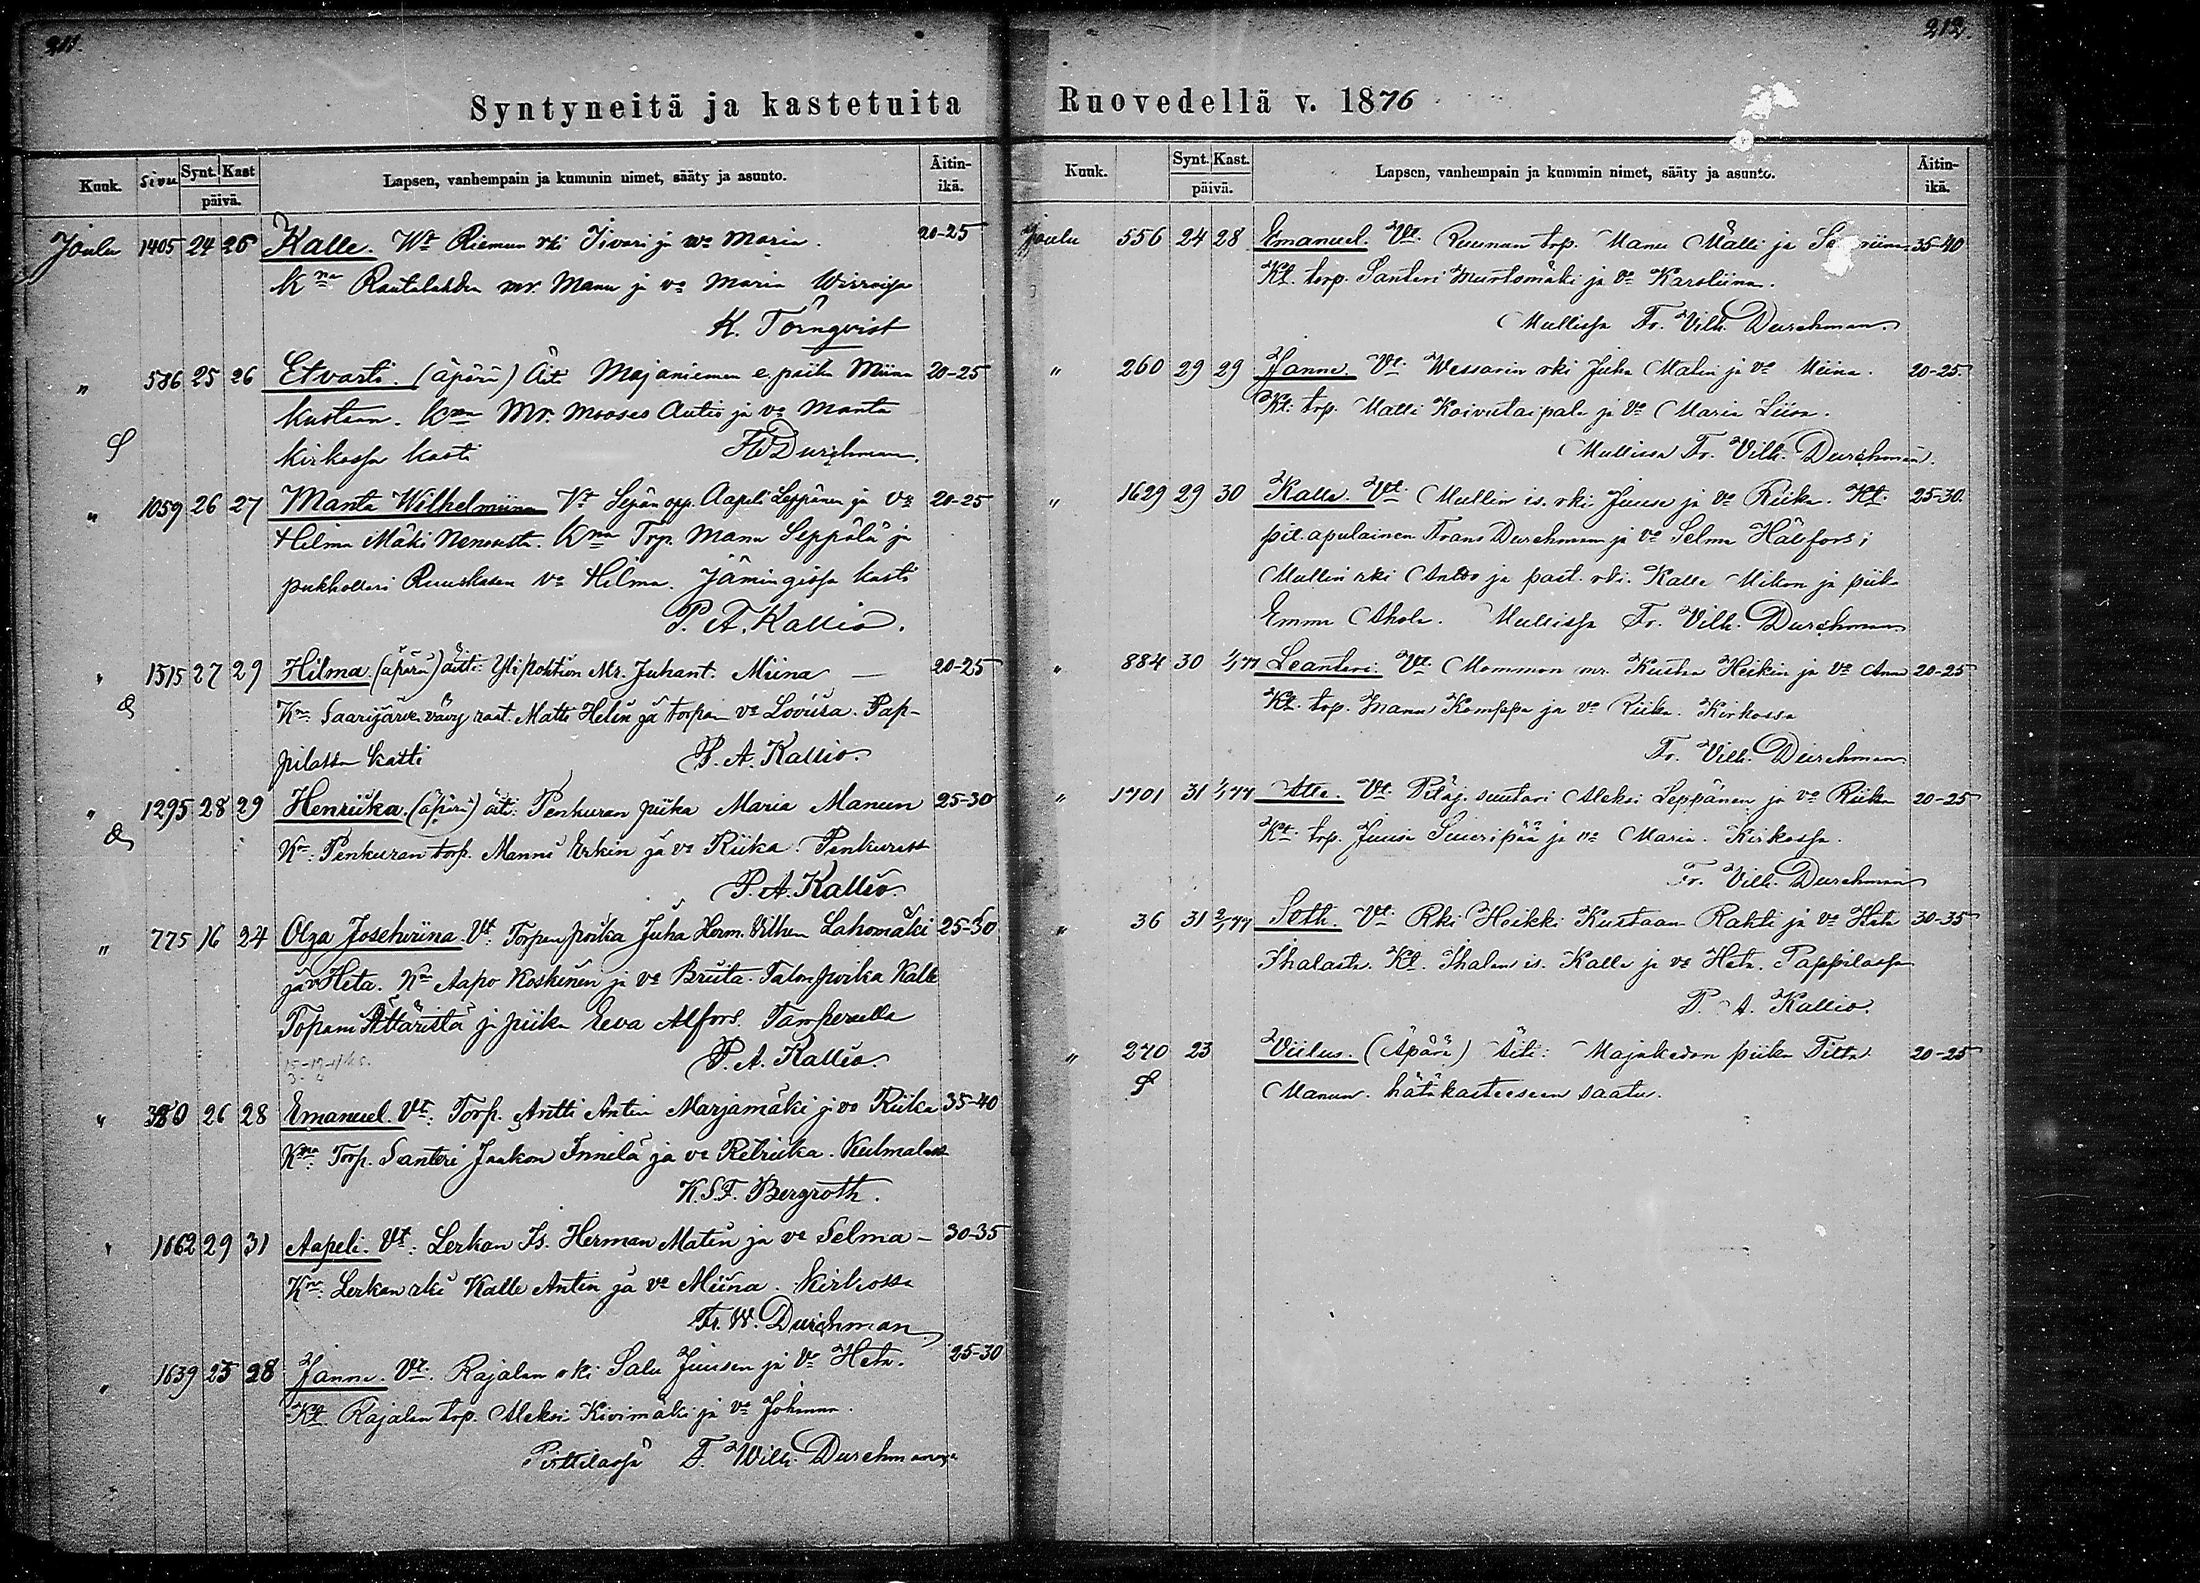 211.
Syntyneitä ja kastetuita
Kuuk. Sivu Synt. Kast päivä. Lapsen, vanhempain ja kummin nimet, sääty ja asunto. Äitin-ikä.
Joulu 1405 24 26 Kalle. Wt Riemun rki Iivari ja wo Maria. 20-25
Kna Rautalahden mr. Manu ja vo Maria Wirroissa
K. Törnqvist
" 586 25 26 Etvarti. (äpärä) Äiti Majaniemen e. piika Miina 20-25
Kustaan. Kna Mr. Mooses Autio ja vo Manta
Kirkossa kasti FW Durchman.
" 1059 26 27 Manta Wilhelmiina Vt Sepän opp. Aapeli Leppänen ja vo 20-25
Hilma Mäki Nenosesta. Kna Trp. Manu Seppälä ja
pukholleri Ruuskasen vo Hilma. Jämingissä kasti
P. A. Kallio.
" 1515 27 29 Hilma. (äpärä) äiti: Ylipohtion Mr. Juhant. Miina — 20-25
Kna. Saarijärven vävy raat. Matti Helin ja torpan vo Loviisa. Pap-
pilassa kasti P. A. Kallio.
" 1295 28 29 Henriika. (äpärä) äiti: Penkuran piika Maria Manun 25-30
Kn: Penkuran torp. Mannu Erkin ja vo Riika. Penkurass
P. A. Kallio.
" 775 16 24 Olga Josehviina. Vt: Torpan poika Juha Herm. Vilhem Lahomäki 25-30
ja vo Heta. Kn Aapo Koskinen ja vo Bruita. Talon poika Kalle
Topami Ättäristä ja piika Eeva Alfors. Tamperella
P. A. Kallio.
" 380 26 28 Emanuel. Vt: Torp. Antti Antin Marjamäki j. vo Riika 35-40
Kna: Torp. Santeri Jaakon Innilä ja vo Retriika. Kulmalass
K.S.F. Bergroth.
" 1662 29 31 Aapeli. Vt: Lerkan Is. Herman Matin ja vo Selma — 30-35
Kn: Lerkan rki Kalle Antin ja vo Miina. Kirkossa
Fr. W. Durchman
" 1639 23 28 Janne. Vt. Rajalan rki Salu Juusen ja vo Heta. 25-30
Kt. Rajalan trp. Aleksi Kivimäki ja vo Johanna.
Pirttilassa F. Wilh. Durchman
212.
Ruovedellä v. 1876
Kuuk. Synt. Kast. päivä. Lapsen, vanhempain ja kummin nimet, sääty ja asunto. Äitin-ikä.
Joulu 556 24 28 Emanuel. Vt. Ruunan trp. Manu Mälli ja 35-40
Kt. torp. Santeri Muntomäki ja vo Karoliina.
Mullissa Fr. Vilh. Durchman.
" 260 29 29 Janne. Vt. Wessarin rki Juha Matin ja vo Miina. 20-25.
Kt. trp. Matti Koivutaipale ja vo Maria Liisa.
Mullissa Fr. Vilh. Durchman.
" 1629 29 30 Kalle. Vt. Mullin is. rki Juuse ja vo Riika. Kt. 25-30.
pit. apulainen Frans Durchman ja vo Selma Hälfors;
Mullin rki Anto ja past. rki. Kalle Mikon ja piik-
Emma Ahola. Mullissa Fr. Vilh. Durchman
" 884 30 1/1 77 Leanteri. Vt. Mommon mr. Kustaa Heikin ja vo Anna 20-25
Kt. trp. Manu Komppa ja vo Riika. Kirkossa
Fr. Vilh. Durchman
" 1701 31 1/1 77 Atte. Vt. Pitäj. suutari Aleksi Leppänen ja vo Riika 20-25
Kt. trp. Juuse Suuripää ja vo Maria. Kirkossa.
Fr. Vilh. Durchman
" 36 31 2/1 77 Seth. Vt. Rki Heikki Kustaan Rahti ja vo Heta 30-35
Ihalasta. Kt. Ihalan is. Kalle ja vo Heta. Pappilassa
P. A. Kallio.
" 270 23 Viilus. (Äpärä) Äiti: Majakedon piika Titta 20-25
Manun. hätäkasteeseen saatu.